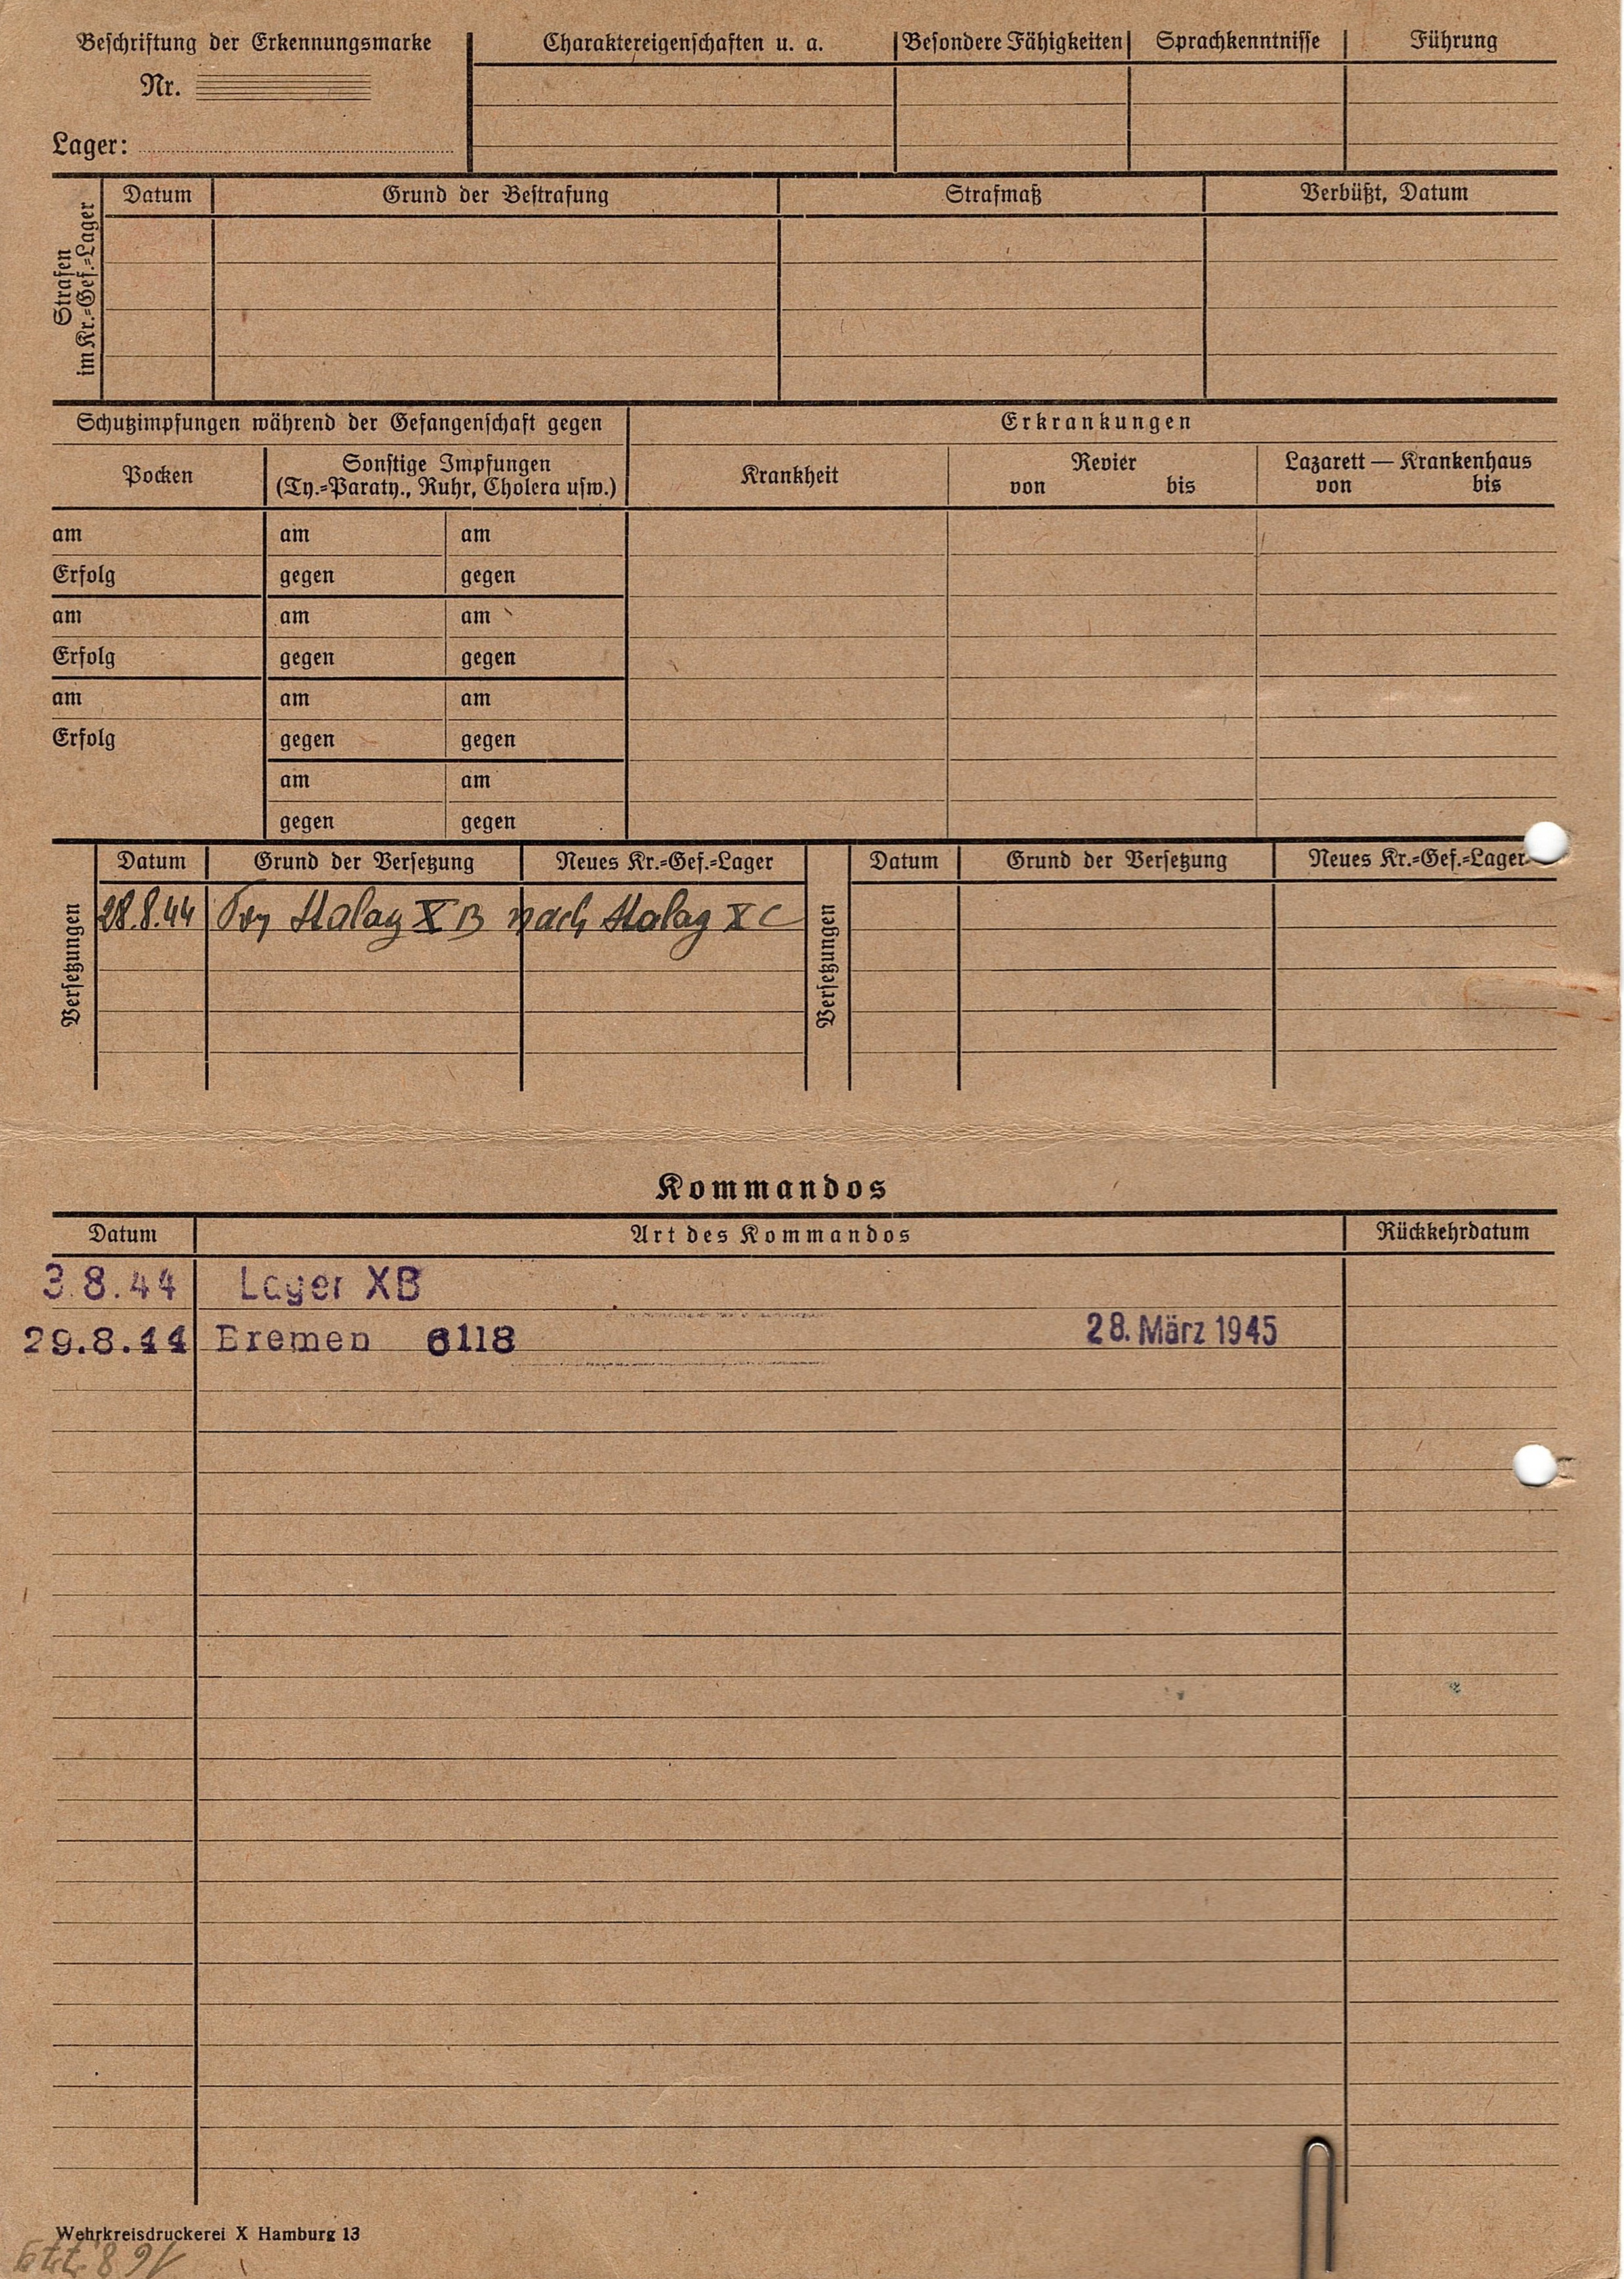 Beschriftung der Erkennungsmarke
Nr.
Lager:
Charaktereigenschaften u. a. Besondere Fähigkeiten Sprachkenntnisse Führung
Strafen
im Kr.=Gef.=Lager
Datum Grund der Bestrafung Strafmaß Verbüßt, Datum
Schutzimpfungen während der Gefangenschaft gegen Erkrankungen
Pocken
Sonstige Impfungen
(Ty.=Paraty., Ruhr, Cholera usw.)
Krankheit
Revier
von bis
Lazarett — Krankenhaus
von bis
am am am
Erfolg gegen gegen
am am am
Erfolg gegen gegen
am am am
Erfolg gegen gegen
am am
gegen gegen
Versetzungen
Datum Grund der Versetzung Neues Kr.=Gef.=Lager
28.8.44 Von Stalag X B nach Stalag X C
Versetzungen
Datum Grund der Versetzung Neues Kr.=Gef.=Lager
Kommandos
Datum Art des Kommandos Rückkehrdatum
3.8.44 Lager XB
29.8.44 Bremen 6118 28. März 1945
Wehrkreisdruckerei X Hamburg 13